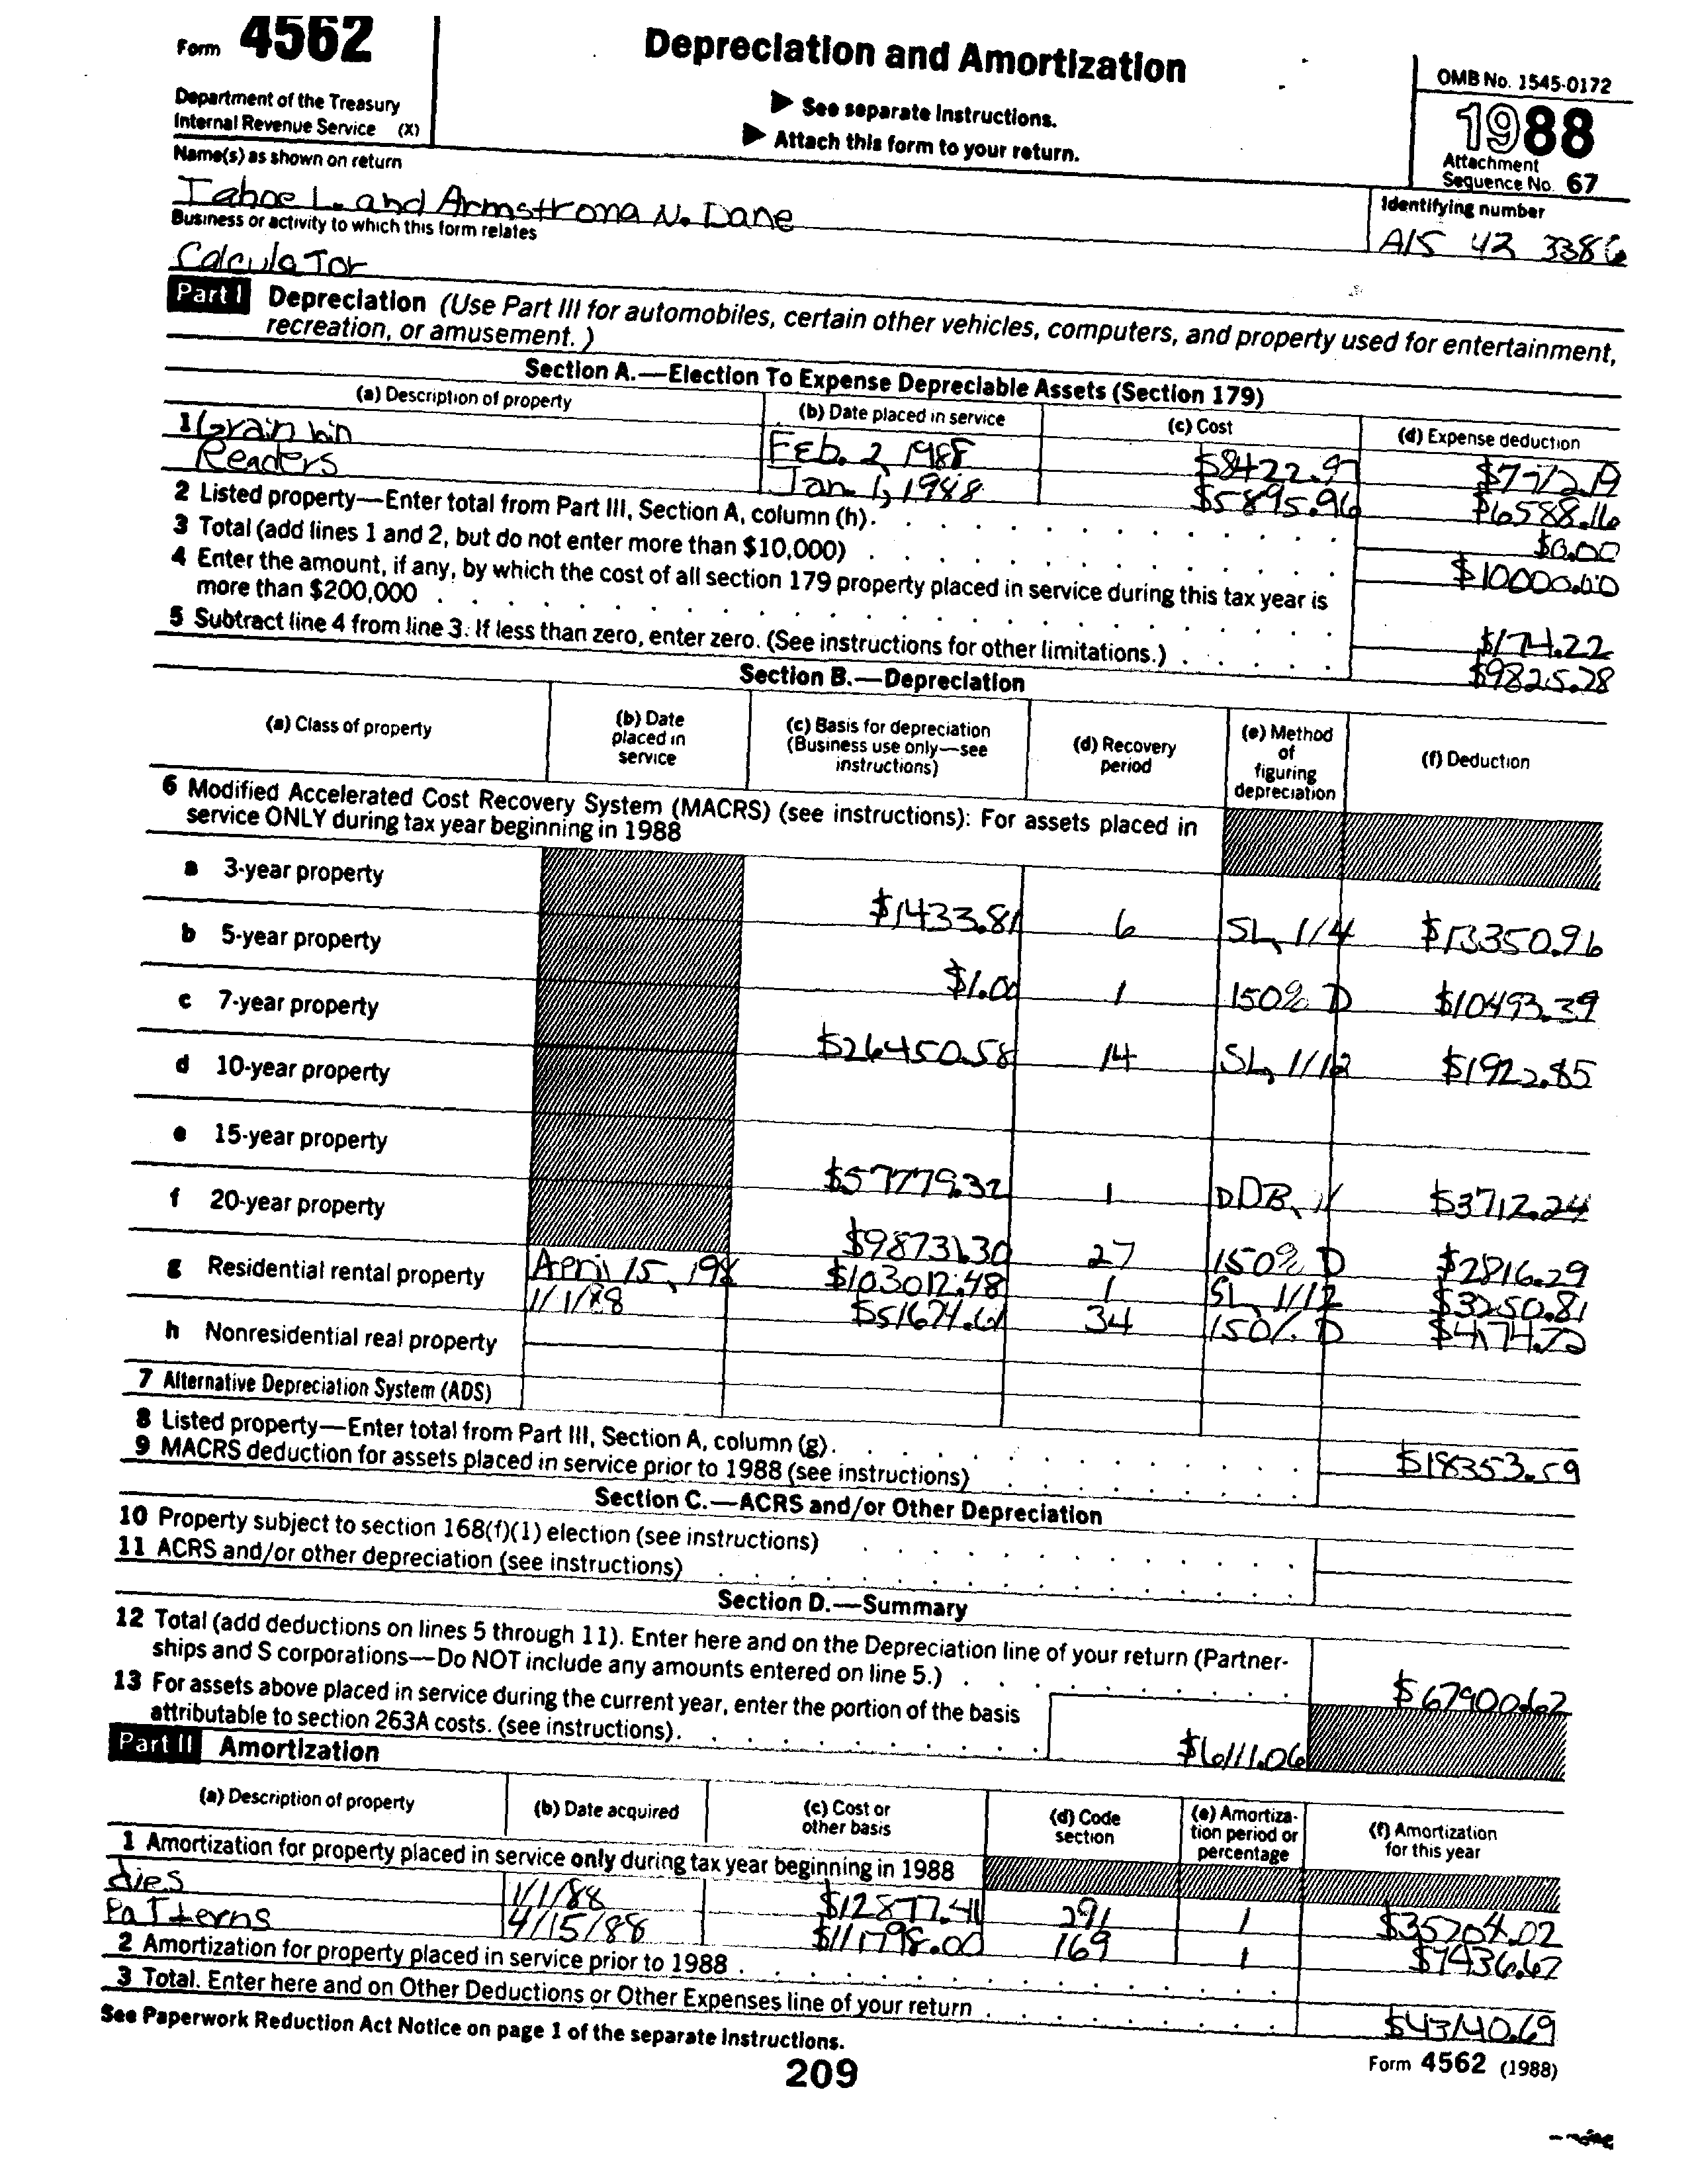 Form 4562
Department of the Treasury
Internal Revenue Service (X)
Depreciation and Amortization
▶ See separate Instructions.
▶ Attach this form to your return.
OMB No. 1545-0172
1988
Attachment
Sequence No. 67
Name(s) as shown on return
Tahoe L. and Armstrong N. Dane
Identifying number
A15 42 3386
Business or activity to which this form relates
Calculator
Part I Depreciation (Use Part III for automobiles, certain other vehicles, computers, and property used for entertainment,
recreation, or amusement.)
Section A.—Election To Expense Depreciable Assets (Section 179)
(a) Description of property (b) Date placed in service (c) Cost (d) Expense deduction
1 Grain bin Feb. 2 1988 $8422.97 $7712.19
Readers Jan 1, 1988 $5895.96 $6588.16
2 Listed property—Enter total from Part III, Section A, column (h). $0.00
3 Total (add lines 1 and 2, but do not enter more than $10,000) $10000.00
4 Enter the amount, if any, by which the cost of all section 179 property placed in service during this tax year is
more than $200,000 $174.22
5 Subtract line 4 from line 3. If less than zero, enter zero. (See instructions for other limitations.) $9825.78
Section B.—Depreciation
(a) Class of property (b) Date placed in service (c) Basis for depreciation (Business use only—see instructions) (d) Recovery period (e) Method of figuring depreciation (f) Deduction
6 Modified Accelerated Cost Recovery System (MACRS) (see instructions): For assets placed in
service ONLY during tax year beginning in 1988
a 3-year property $1433.81 6 SL, 1/4 $13350.96
b 5-year property $1.00 1 150% D $10493.39
c 7-year property $26450.58 14 SL, 1/12 $1922.85
d 10-year property
e 15-year property $57779.32 1 DDB, 1/ $3712.24
f 20-year property $98731.30 27 150% D $2816.29
g Residential rental property April 15, 198 $103012.48 1 SL, 1/12 $3250.81
1/1/88 $51674.61 34 150% D $4174.72
h Nonresidential real property
7 Alternative Depreciation System (ADS)
8 Listed property—Enter total from Part III, Section A, column (g). $18353.59
9 MACRS deduction for assets placed in service prior to 1988 (see instructions)
Section C.—ACRS and/or Other Depreciation
10 Property subject to section 168(f)(1) election (see instructions)
11 ACRS and/or other depreciation (see instructions)
Section D.—Summary
12 Total (add deductions on lines 5 through 11). Enter here and on the Depreciation line of your return (Partner-
ships and S corporations—Do NOT include any amounts entered on line 5.) $67900.62
13 For assets above placed in service during the current year, enter the portion of the basis
attributable to section 263A costs. (see instructions). $6111.06
Part II Amortization
(a) Description of property (b) Date acquired (c) Cost or other basis (d) Code section (e) Amortiza-tion period or percentage (f) Amortization for this year
1 Amortization for property placed in service only during tax year beginning in 1988
dies 1/1/88 $12877.41 291 1 $35704.02
Patterns 4/15/88 $111798.00 169 1 $7436.67
2 Amortization for property placed in service prior to 1988
3 Total. Enter here and on Other Deductions or Other Expenses line of your return $43140.69
See Paperwork Reduction Act Notice on page 1 of the separate instructions.
209
Form 4562 (1988)